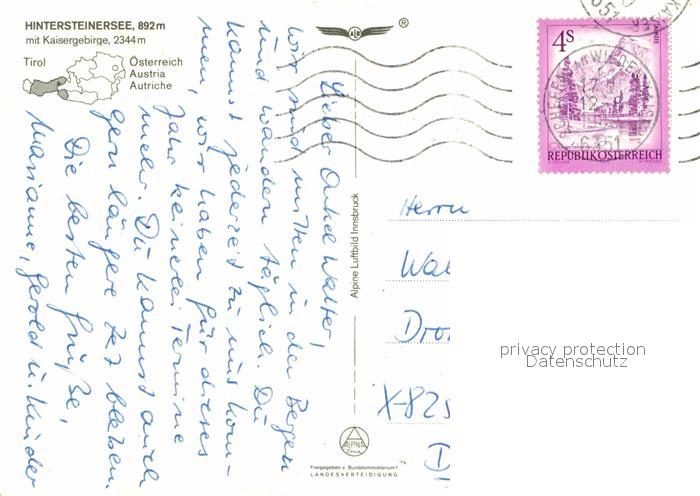 HINTERSTEINERSEE, 892 m
mit Kaisergebirge, 2344 m
Tirol
Österreich
Austria
Autriche
®
Lieber Onkel Walter,
wir sind mitten in den Bergen
und wandern täglich. Du
kannst jederzeit zu uns kom-
men, wir haben für dieses
Jahr keinerlei Termine
mehr. Du kannst auch
gern längere Zeit bleiben.
Die besten Grüße,
Marianne, Gerold u. Kinder
Alpine Luftbild Innsbruck
ALPINA
Freigegeben v. Bundesministerium f.
LANDESVERTEIDIGUNG
4S
REPUBLIK ÖSTERREICH
6351
Herrn
Wal
X-825
privacy protection
Datenschutz